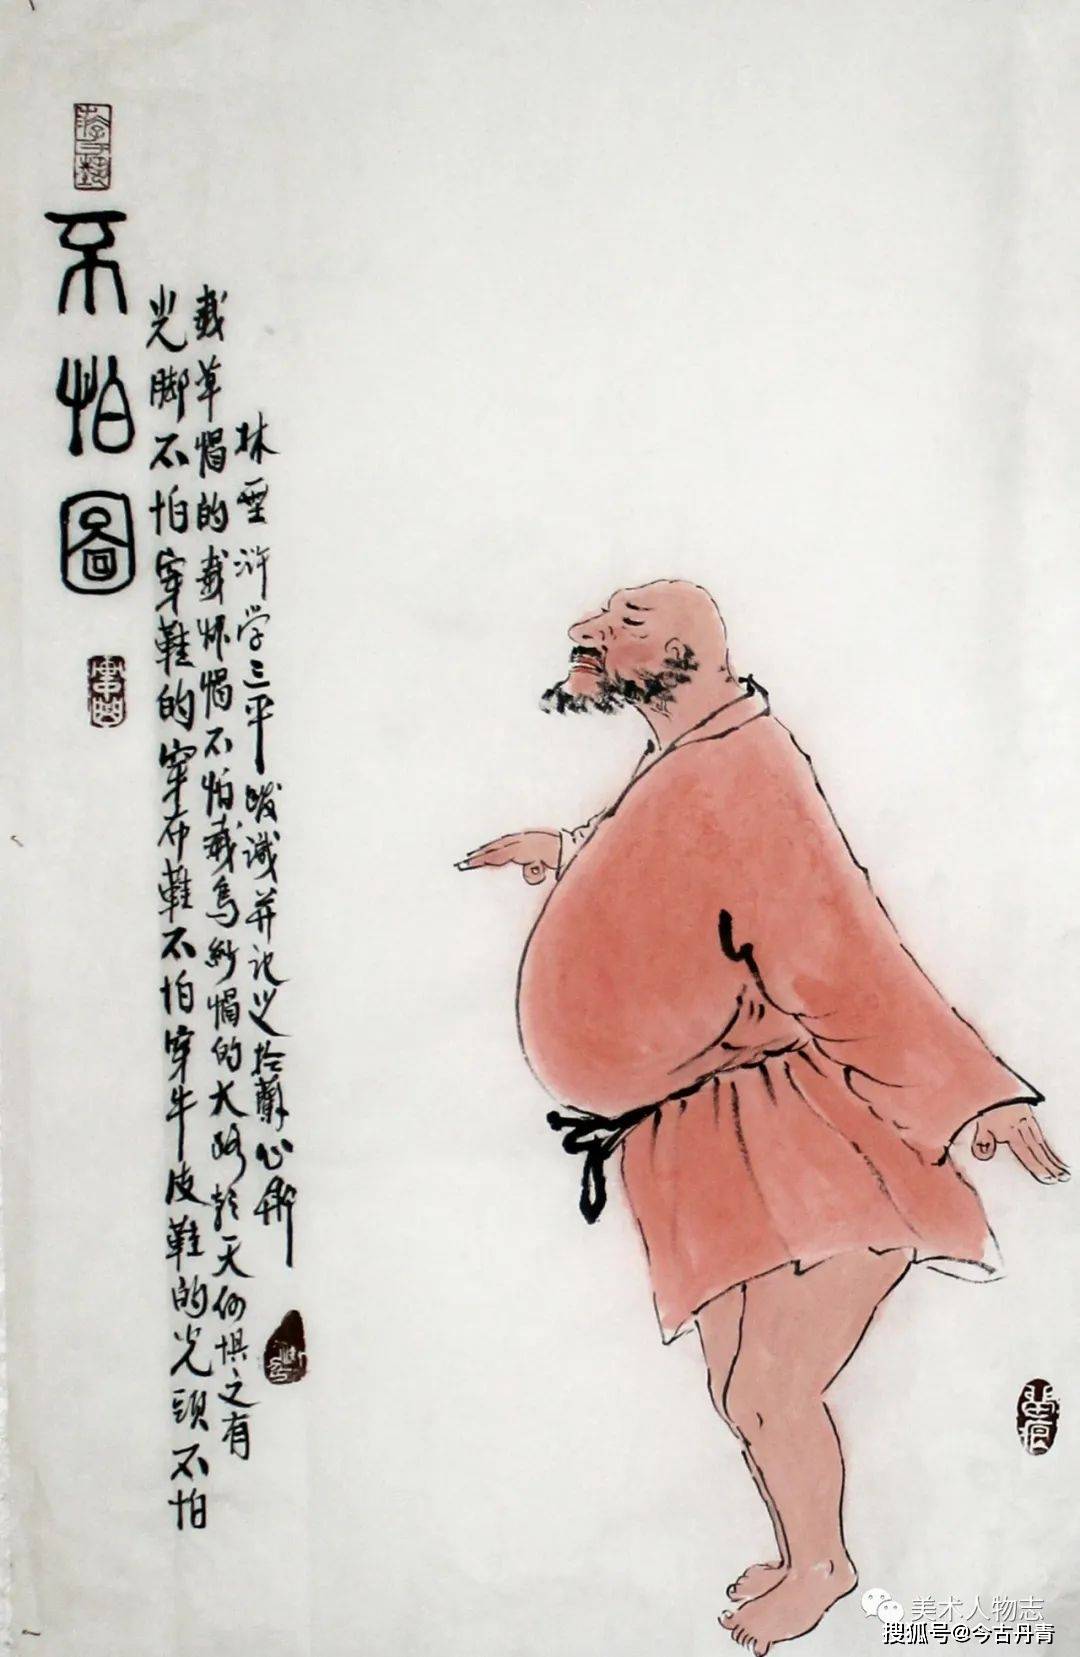 不怕圖
光脚不怕穿鞋的穿布鞋不怕穿牛皮鞋的光頭不怕
戴草帽的戴帽不怕戴烏紗帽的大路朝天何惧之有
林浒学三平峻識并记於蘭心斋
美术人物志
搜狐号@今古丹青